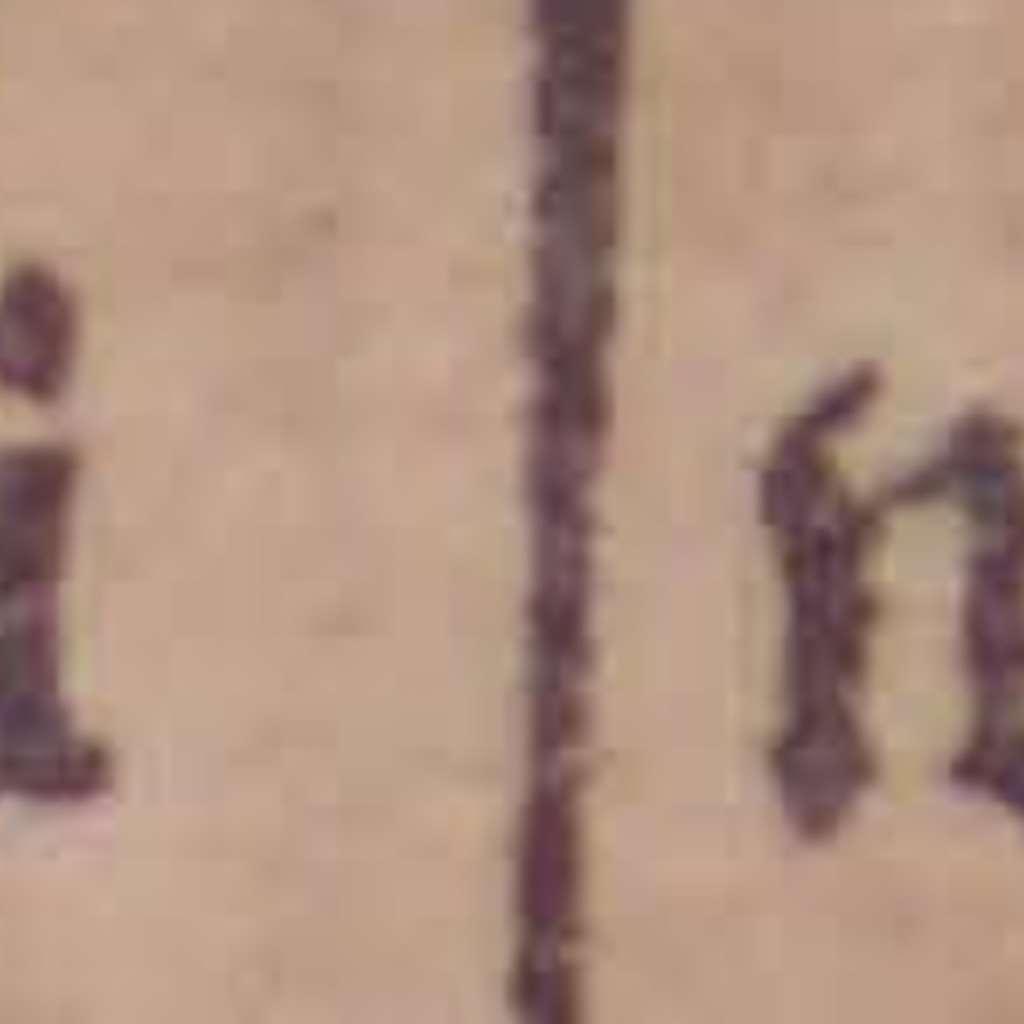 i | n